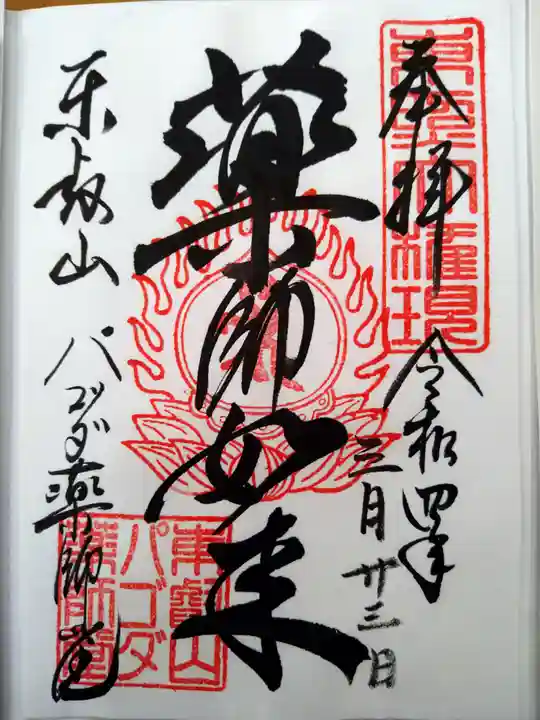 奉拝
令和四年
三月廿三日
薬師如来
東叡山
パゴダ薬師堂
東照大権現
東叡山
パゴダ
薬師堂